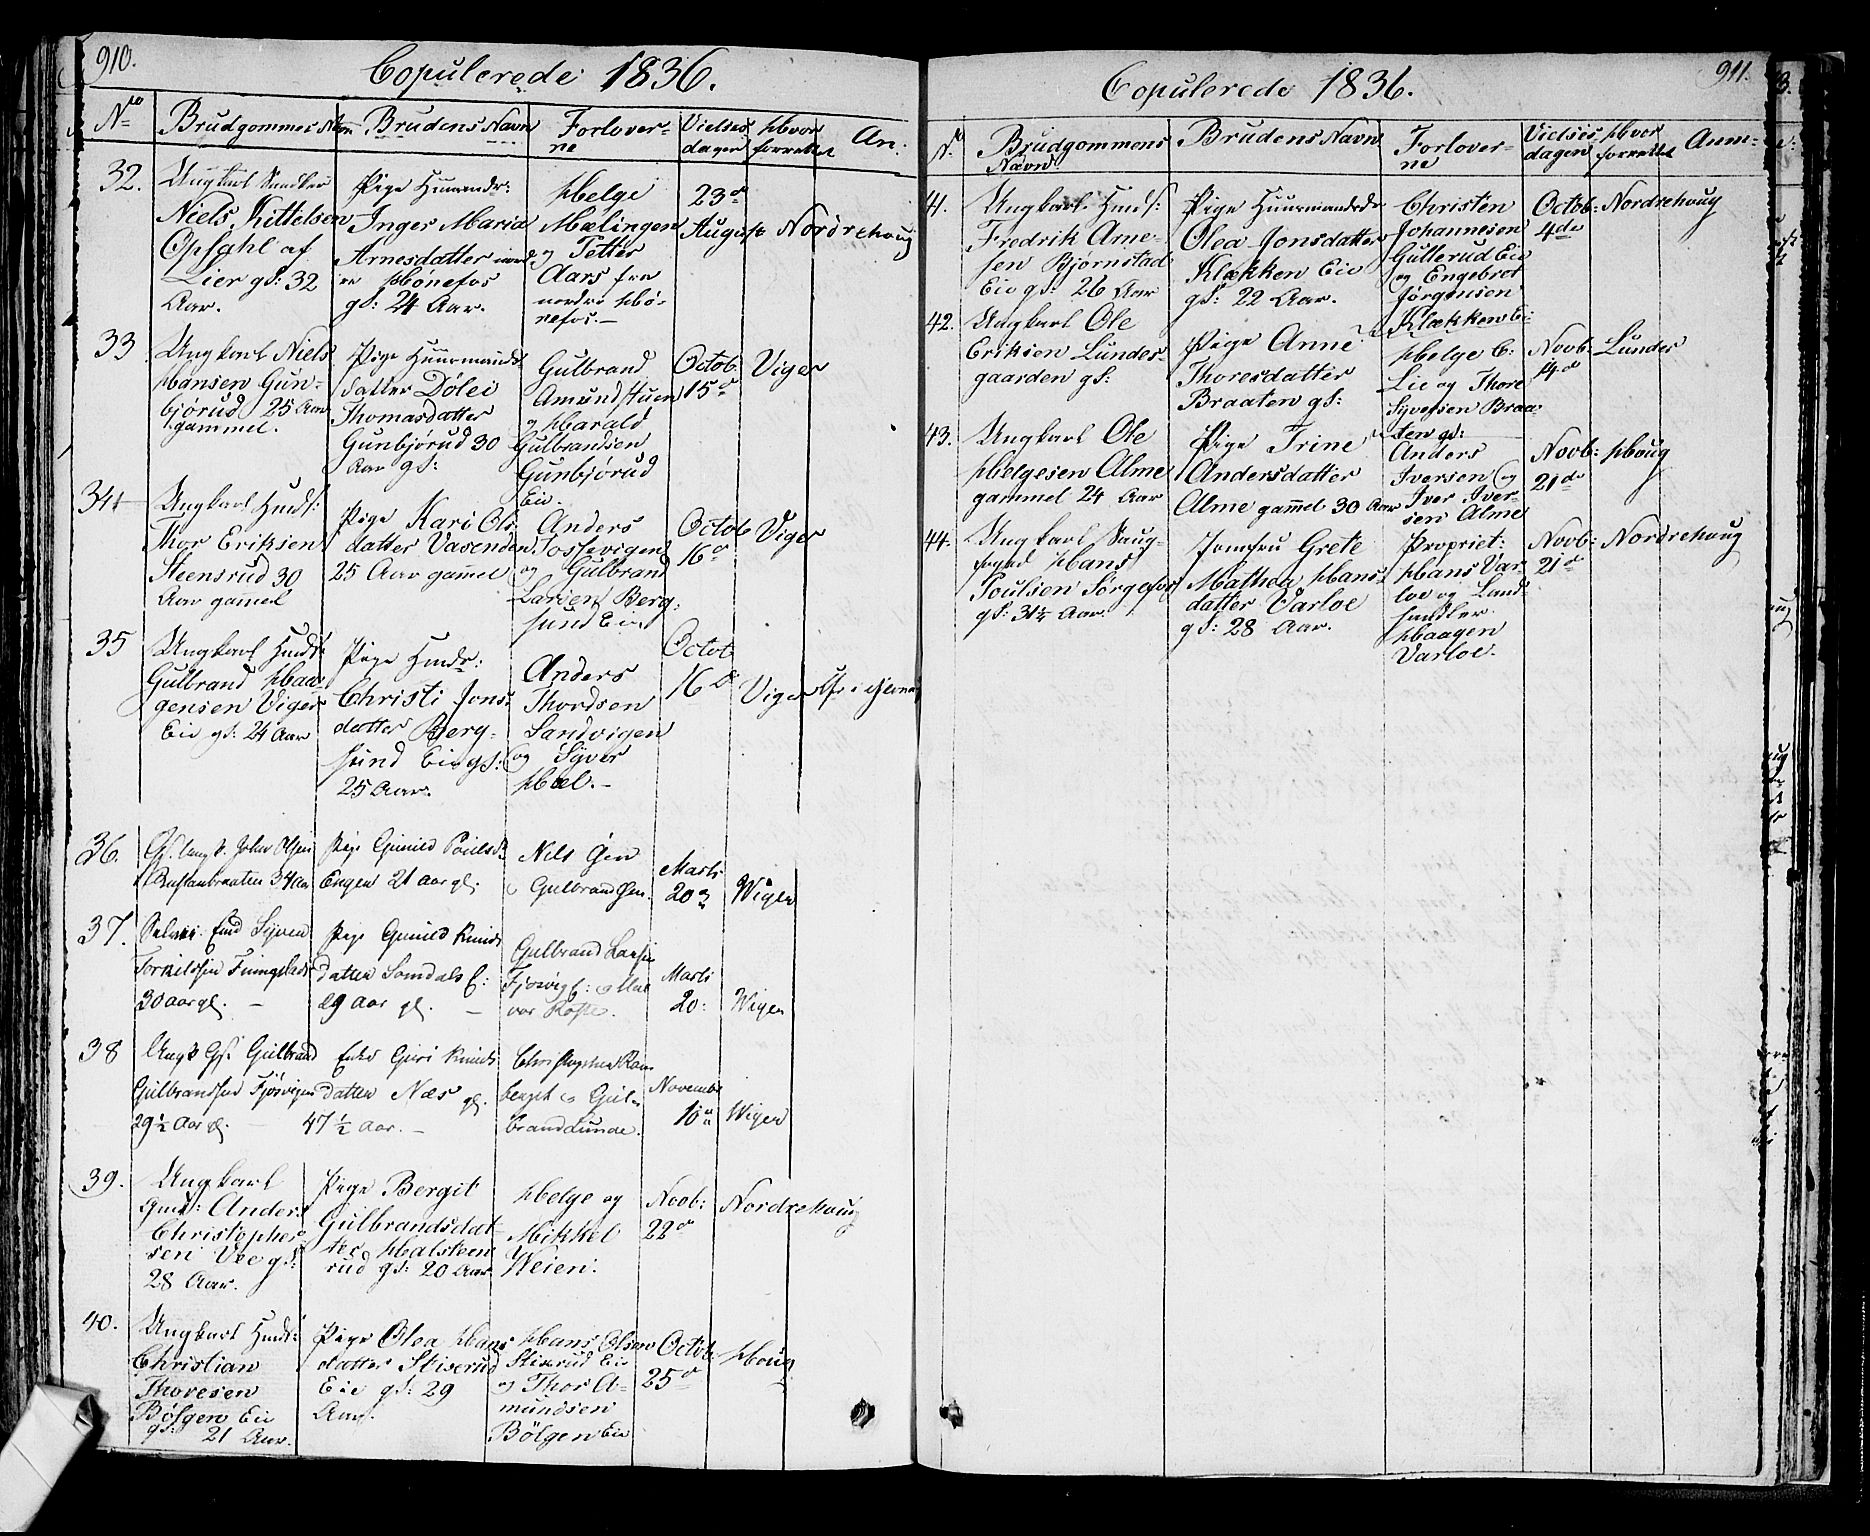 910.
Copulerede 1836.
No Brudgommes Navn Brudens Navn Forlover-ne Vielses dagen Hvor forrettet An:
32.
Ungkarl Snedker
Niels Kittelsen
Opsahl af
Lier gl: 32
Aar.
Pige Huusmandsd:
Inger Maria
Arnesdatter nord-
re Hønefos
gl: 24 Aar.
Helge
Mælingen
og Petter
Aars fra
nordre Hø-
nefos.-
23de
August
Nordrehoug
33
Ungkarl Niels
Hansen Gun-
bjørud 25 Aar
gammel.
Pige Huusmands
datter Dølei
Thomasdatter
Gunbjørud 30
Aar gl:
Gulbrand
Amundstuen
og Harald
Gulbrandsen
Gunbjørud
Eie.
Octob
15de
Viger
34
Ungkarl Huusm:
Thor Eriksen
Steensrud 30
Aar gammel
Pige Kari Ols-
datter Vasenden
25 Aar gammel
Anders
Tossevigen
og Gulbrand
Larsen Berg-
sund Eie
Octob
16de
Viger
35
Ungkarl Huusm:
Gulbrand Haa-
gensen Viger
Eie gl: 24 Aar
Pige Huusm:
Christi Jons-
datter Berg-
sund Eie gl:
25 Aar.
Anders
Thordsen
Sandvigen
og Syver
Hæl.-
Octob
16de
Viger
36.
John Olsen
34 Aar
Pige Gunild Poulsd:
Engen 21 aar gl.
Nils Gen
Gulbrandsen.
Marts
20de
Wigen
37.
Syver
Torkildsen
30 aar gl. -
Pige Gunild Knuds
datter Somdals E:
29 aar gl. -
Gulbrand Larsen
Fjosvig E:
Marts
20:
Wigen
38
Ungk Gulbrand
Gulbrandsen Fjosvigen
29½ Aar gl.
Enke Guri Knuds
datter Næs gl.
47½ aar. -
Christopher
berget og Gul-
brand Lunde.
November
10de
Wigen
39.
Ungkarl
Gmd: Anders
Christopher
sen Vee gl:
28 Aar.
Pige Bergit
Gulbrandsdat-
ter Halsteen
rud gl: 20 Aar
Helge og
Mikkel
Weien.
Novb:
22de
Nordrehoug
40.
Ungkarl Huusm:
Christian
Thoresen
Bølgen Eie
gl: 21 Aar.
Pige Olea Hans
datter Stiserud
Eie gl: 29
Aar.
Hans Olsen
Stiserud Eie
og Thor A-
mundsen
Bølgen Eie
Octob:
25de
Houg
911.
Copulerede 1836.
No Brudgommens Navn Brudens Navn Forlover-ne Vielses dagen Hvor forrettet Anm:
41.
Ungkarl Huusm:
Fredrik Arne-
sen Bjørnstad
Eie gl: 26 Aar
Pige Huusmandsd:
Olea Jonsdatter
Klækken Eie
gl: 22 Aar.
Christen
Johannesen
Gullerud Eie
og Engebret
Jørgensen
Klækken Ei
Octob:
4de
Nordrehoug
42.
Ungkarl Ole
Eriksen Lundes-
gaarden gl:
Pige Anne
Thoresdatter
Braaten gl:
Helge E:
Lie og Thore
Syversen Braa-
ten gl:
Novb:
14de
Lunder
43.
Ungkarl Ole
Helgesen Alme
gammel 24 Aar
Pige Trine
Andersdatter
Alme gammel 30 Aar
Anders
Iversen og
Iver Iver-
sen Alme
Novb:
21de
Houg
44.
Ungkarl Saug-
foged Hans
Poulsen Sørgefos
gl: 31½ Aar.
Jomfru Grete
Mathea Hans-
datter Varloe
gl: 28 Aar.
Propriet:
Hans Var-
loe og Land-
handler
Haagen
Varloe.
Novb:
21de
Nordrehoug